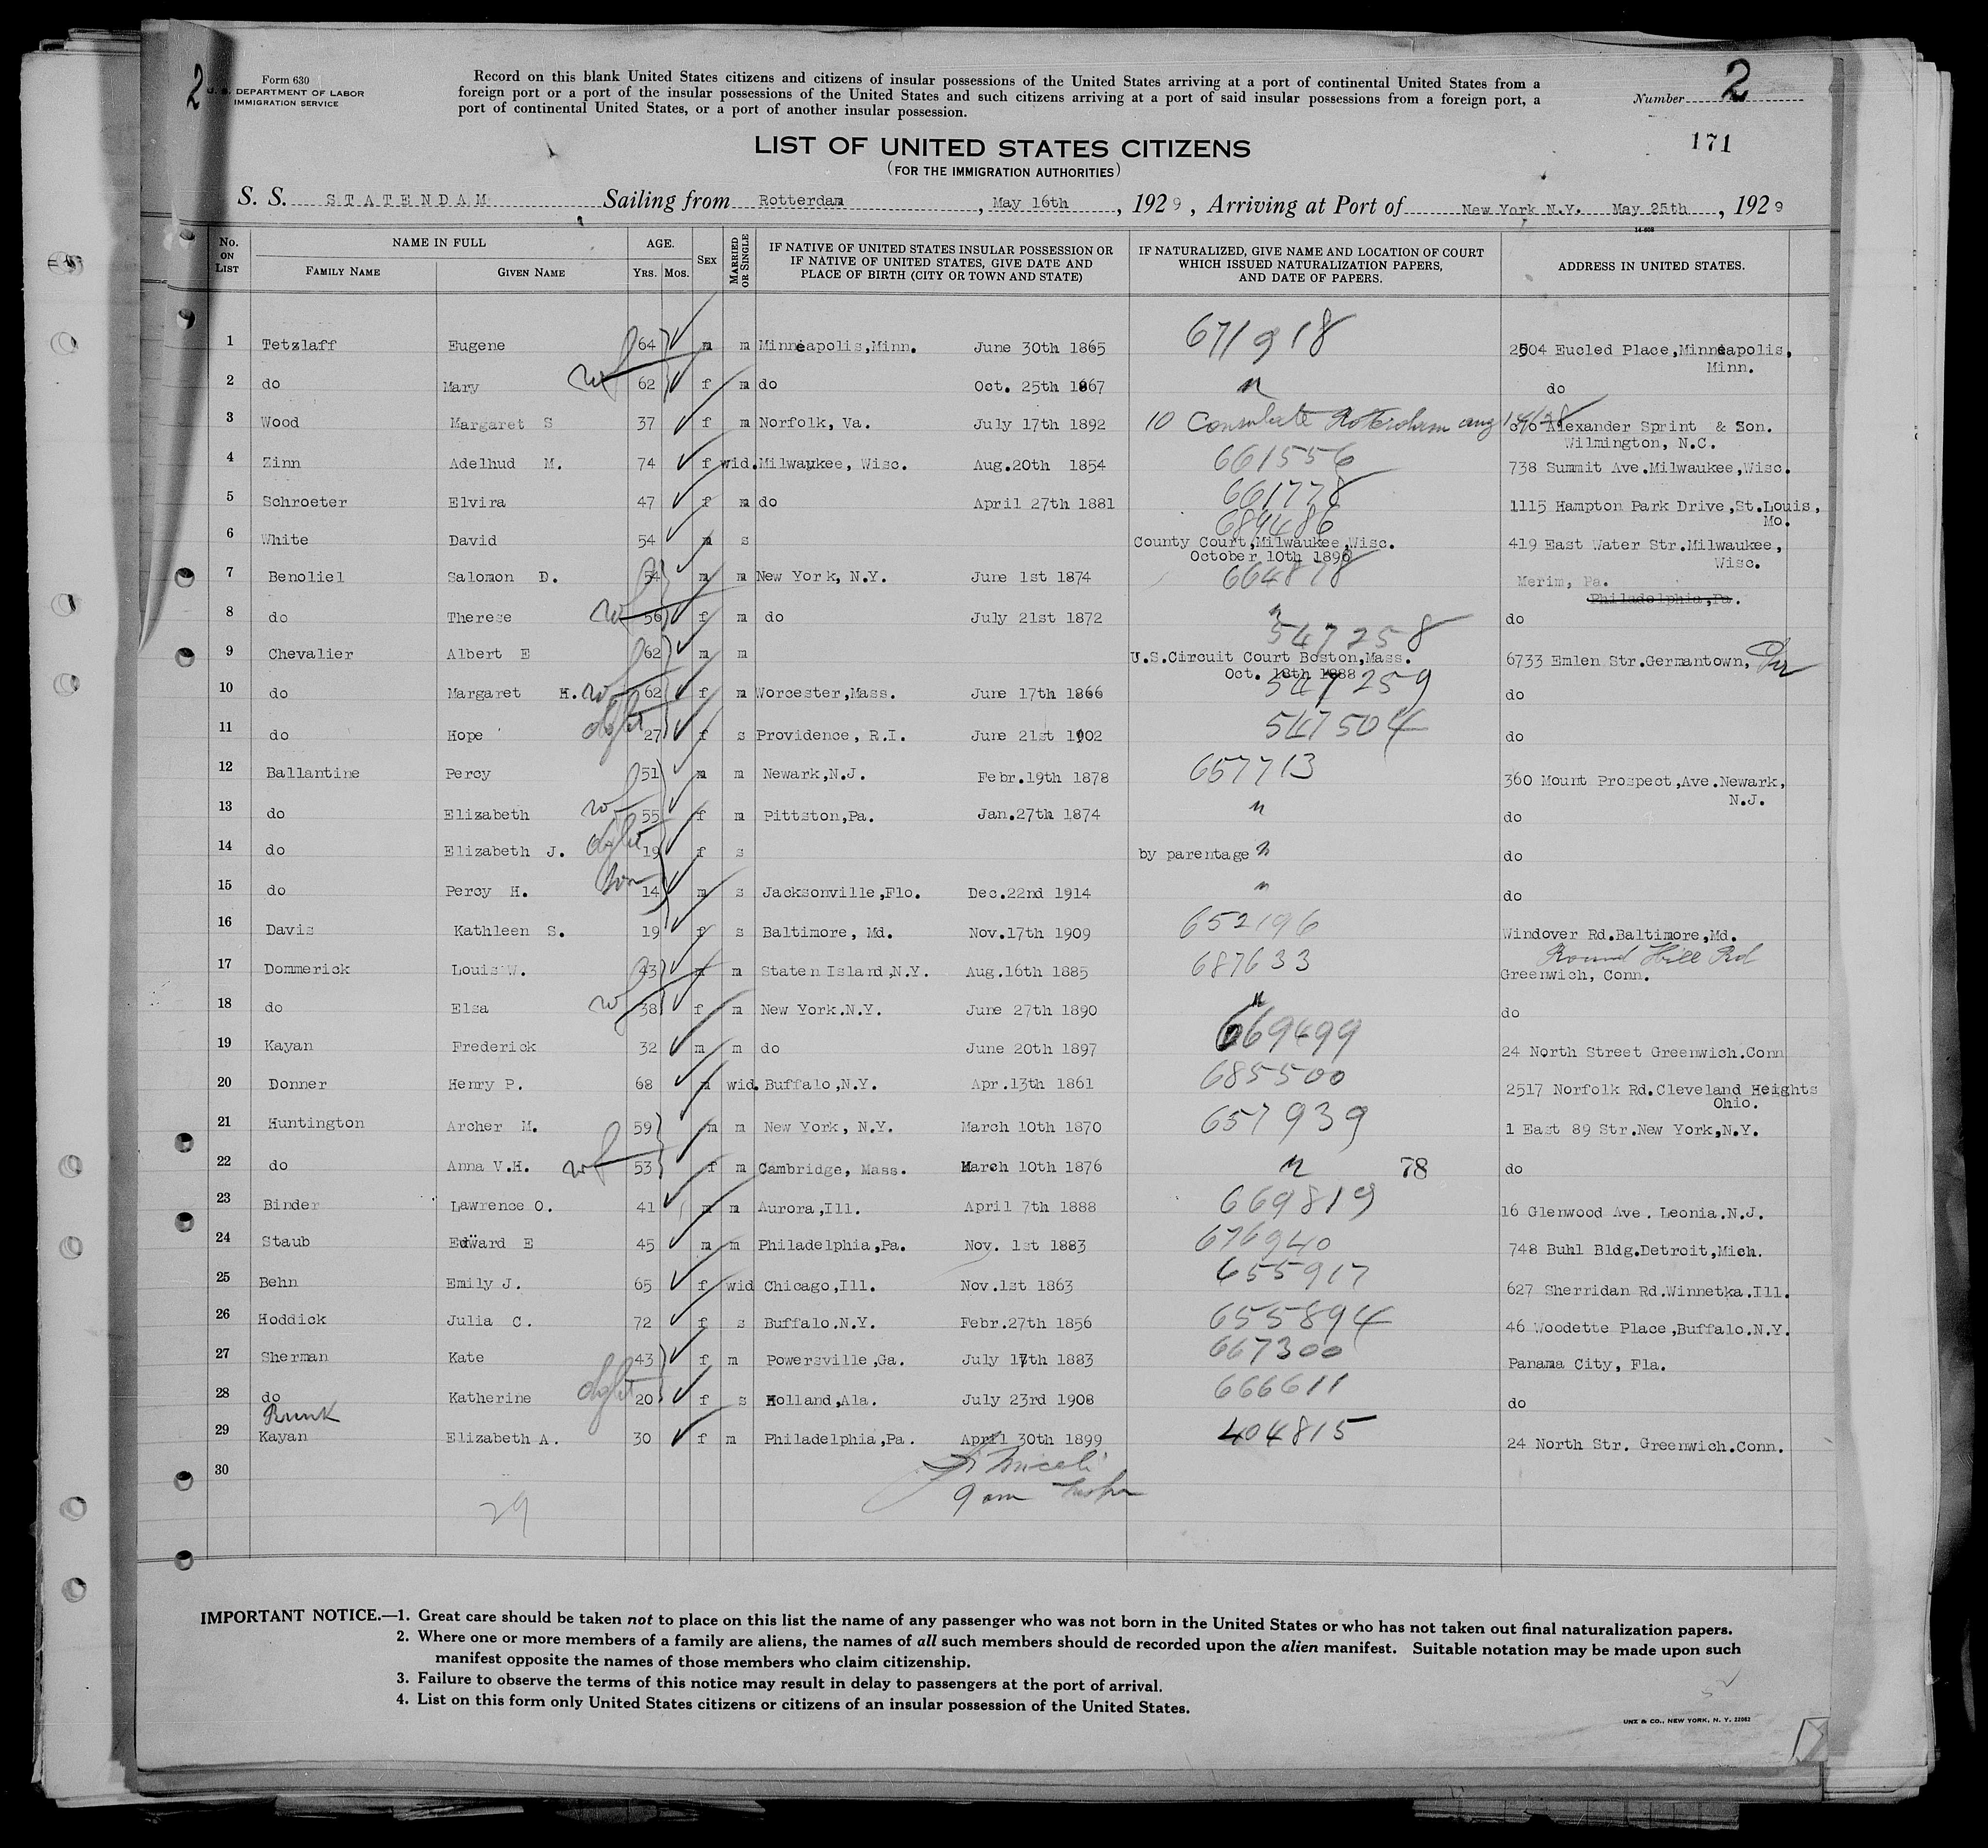 2
Form 630
U. S. DEPARTMENT OF LABOR
IMMIGRATION SERVICE
Record on this blank United States citizens and citizens of insular possessions of the United States arriving at a port of continental United States from a
foreign port or a port of the insular possessions of the United States and such citizens arriving at a port of said insular possessions from a foreign port, a
port of continental United States, or a port of another insular possession.
Number 2
171
LIST OF UNITED STATES CITIZENS
(FOR THE IMMIGRATION AUTHORITIES)
S. S. STATENDAM Sailing from Rotterdam, May 16th, 1929, Arriving at Port of New York N.Y. May 25th, 1929
14-508
No. ON LIST NAME IN FULL FAMILY NAME GIVEN NAME AGE. Yrs. Mos. SEX MARRIED OR SINGLE IF NATIVE OF UNITED STATES INSULAR POSSESSION OR IF NATIVE OF UNITED STATES, GIVE DATE AND PLACE OF BIRTH (CITY OR TOWN AND STATE) IF NATURALIZED, GIVE NAME AND LOCATION OF COURT WHICH ISSUED NATURALIZATION PAPERS, AND DATE OF PAPERS. ADDRESS IN UNITED STATES.
1 Tetzlaff Eugene 64 m m Minneapolis,Minn. June 30th 1865 671918 2504 Eucled Place,Minneapolis, Minn.
2 do Mary wf 62 f m do Oct. 25th 1867 " do
3 Wood Margaret S 37 f m Norfolk, Va. July 17th 1892 10 Consulate Rotterdam aug 14/28 c/o Alexander Sprint & Son. Wilmington, N.C.
4 Zinn Adelhud M. 74 f wid. Milwaukee, Wisc. Aug.20th 1854 661556 738 Summit Ave.Milwaukee,Wisc.
5 Schroeter Elvira 47 f m do April 27th 1881 661778 1115 Hampton Park Drive,St.Louis, Mo.
6 White David 54 m s 689486 County Court,Milwaukee,Wisc. October 10th 1896 419 East Water Str.Milwaukee, Wisc.
7 Benoliel Salomon D. 54 m m New York, N.Y. June 1st 1874 664818 Merim, Pa. Philadelphia,Pa.
8 do Therese wf 56 f m do July 21st 1872 " do
9 Chevalier Albert E 62 m m 547258 U.S.Circuit Court Boston,Mass. Oct. 18th 1888 6733 Emlen Str.Germantown,
10 do Margaret H. wf 62 f m Worcester,Mass. June 17th 1866 547259 do
11 do Hope dght 27 f s Providence, R.I. June 21st 1902 547504 do
12 Ballantine Percy 51 m m Newark,N.J. Febr.19th 1878 657713 360 Mount Prospect,Ave.Newark, N.J.
13 do Elizabeth wf 55 f m Pittston,Pa. Jan.27th 1874 " do
14 do Elizabeth J. dght 19 f s by parentage " do
15 do Percy H. son 14 m s Jacksonville,Flo. Dec.22nd 1914 " do
16 Davis Kathleen S. 19 f s Baltimore, Md. Nov.17th 1909 652196 Windover Rd.Baltimore,Md.
17 Dommerick Louis W. 43 m m Staten Island,N.Y. Aug.16th 1885 687633 Round Hill Rd Greenwich, Conn.
18 do Elsa wf 38 f m New York.N.Y. June 27th 1890 " do
19 Kayan Frederick 32 m m do June 20th 1897 669499 24 North Street Greenwich.Conn
20 Donner Henry P. 68 m wid. Buffalo,N.Y. Apr.13th 1861 685500 2517 Norfolk Rd.Cleveland Heights Ohio.
21 Huntington Archer M. 59 m m New York, N.Y. March 10th 1870 657939 1 East 89 Str.New York,N.Y.
22 do Anna V.H. wf 53 f m Cambridge, Mass. March 10th 1876 " 78 do
23 Binder Lawrence O. 41 m m Aurora,Ill. April 7th 1888 669819 16 Glenwood Ave. Leonia.N.J.
24 Staub Edward E 45 m m Philadelphia,Pa. Nov. 1st 1883 676940 748 Buhl Bldg.Detroit,Mich.
25 Behn Emily J. 65 f wid Chicago,Ill. Nov.1st 1863 655917 627 Sherridan Rd.Winnetka.Ill.
26 Hoddick Julia C. 72 f s Buffalo.N.Y. Febr.27th 1856 655894 46 Woodette Place,Buffalo.N.Y.
27 Sherman Kate 43 f m Powersville,Ga. July 17th 1883 667300 Panama City, Fla.
28 do Katherine dght 20 f s Holland,Ala. July 23rd 1908 666611 do
Runk
29 Kayan Elizabeth A. 30 f m Philadelphia,Pa. April 30th 1899 404815 24 North Str. Greenwich.Conn.
30
9 am
29
IMPORTANT NOTICE.—1. Great care should be taken not to place on this list the name of any passenger who was not born in the United States or who has not taken out final naturalization papers.
2. Where one or more members of a family are aliens, the names of all such members should de recorded upon the alien manifest. Suitable notation may be made upon such
manifest opposite the names of those members who claim citizenship.
3. Failure to observe the terms of this notice may result in delay to passengers at the port of arrival.
4. List on this form only United States citizens or citizens of an insular possession of the United States.
UNZ & CO., NEW YORK, N. Y. 22082